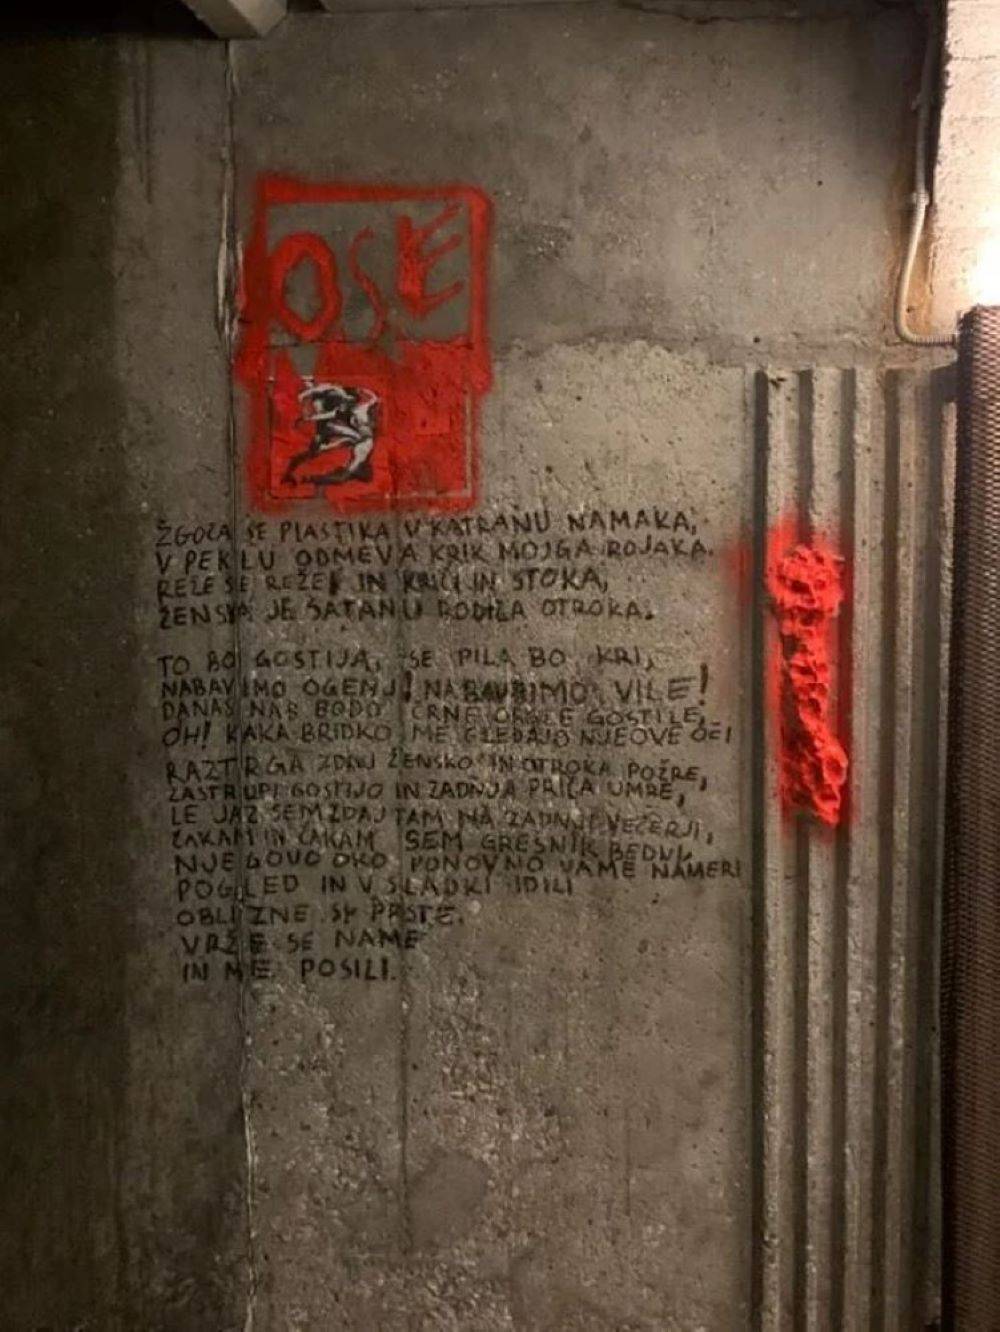 OSE
ŽGOČA SE PLASTIKA V KATRANU NAMAKA,
V PEKLU ODMEVA KRIK MOJGA ROJAKA.
REŽE SE REŽE IN KRIČI IN STOKA,
ŽENSKA JE SATANU RODILA OTROKA.
TO BO GOSTIJA, SE PILA BO KRI,
NABAVIMO OGENJ! NABAVIMO VILE!
DANAS NAS BODO ČRNE GOSTILE,
OH! KAKA BRIDKO ME GLEDAJO NJEOVE OČI
RAZTRGA ZDAJ ŽENSKO IN OTROKA POŽRE,
ZASTRUPI GOSTIJO IN ZADNJA PRIČA UMRE,
LE JAZ SEM ZDAJ TAM NA ZADNJI VEČERJI,
ČAKAM IN ČAKAM SEM GREŠNIK
NJEGOVO OKO PONOVNO VAME NAMERI
POGLED IN V SLADKI IDILI
OBLIZNE SI PRSTE.
VRŽE SE NAME
IN ME POSILI.